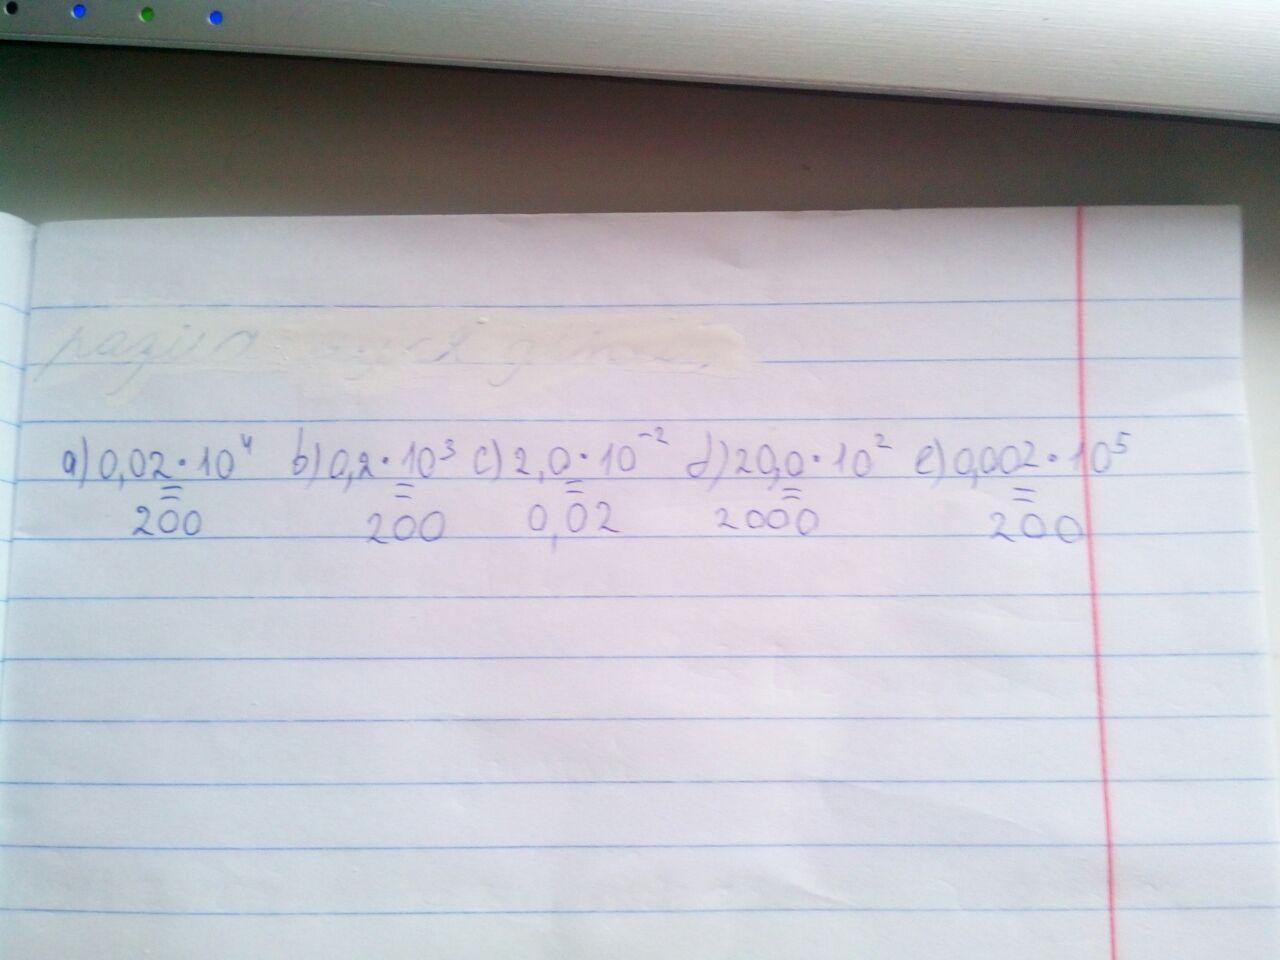 a) 0,02·10⁴ b) 0,2·10³ c) 2,0·10⁻² d) 20,0·10² e) 0,002·10⁵
= = = = =
200 200 0,02 2000 200